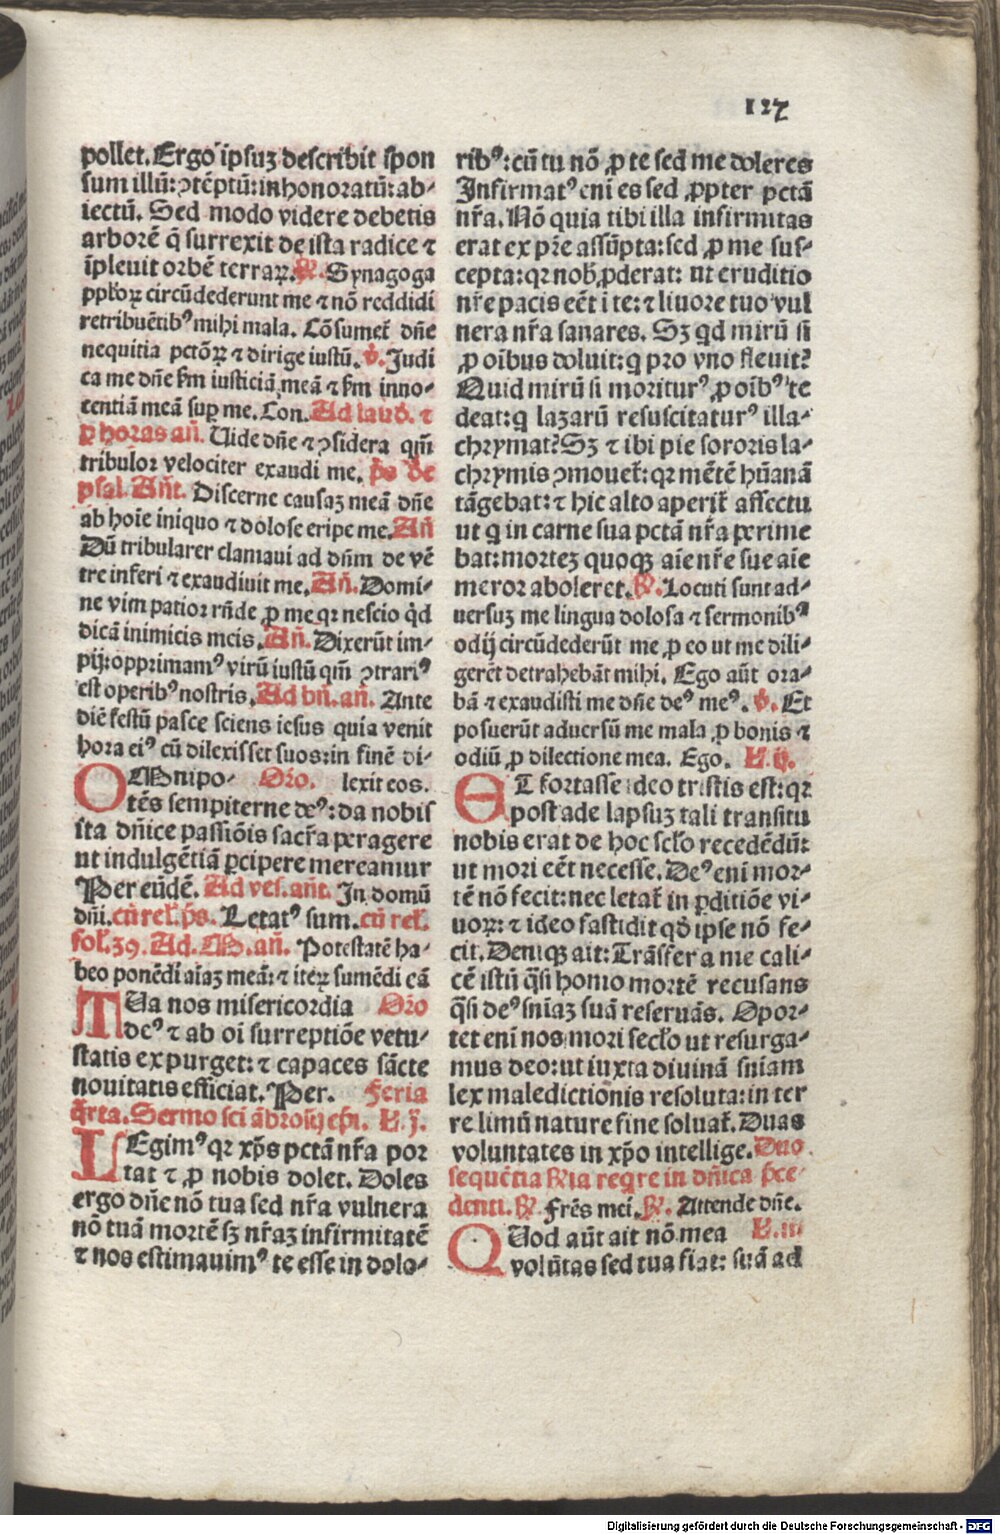 127
pollet. Ergo ipsuz describit spon
sum illũ: ↄtẽptũ: inhonoratũ: ab⸗
iectũ. Sed modo videre debetis
arborẽ q̃ surrexit de ista radice ⁊
ĩpleuit orbẽ terraꝝ. ℟. Synagoga
pplõꝝ circũdederunt me ⁊ nõ reddidi
retribuẽtibꝰ mihi mala. Cõsumet̃ dñe
nequitia pctõꝝ ⁊ dirige iustũ. ℣. Judi
ca me dñe ẜm iusticiã meã ⁊ ẜm inno⸗
centiã meã sup me. Con. Ad laud. ⁊
ꝑ horas añ. Uide dñe ⁊ ↄsidera qm̃
tribulor velociter exaudi me. p̃s de
psal. Añt. Discerne causaz meã dñe
ab hoĩe iniquo ⁊ doloſe eripe me. Añ
Dũ tribularer clamaui ad dñm de vẽ
tre inferi ⁊ exaudiuit me. Añ. Domi⸗
ne vim patior rñde ꝓ me qr nescio q̇d
dicã inimicis meis. Añ. Dixerũt im⸗
pij: opprimamꝰ virũ iustũ qm̃ ↄtrariꝰ
est operibꝰ nostris. Ad bñ. añ. Ante
diẽ festũ pasce sciens iesus quia venit
hora eiꝰ cũ dilexisset suos: in finẽ di⸗
OMnipo⸗ Oro. lexit eos.
tẽs sempiterne deꝰ: da nobis
ita dñice passiõis sacr̃a peragere
ut indulgẽtiã ꝑcipere mereamur
Per eũdẽ. Ad ves. añt. In domũ
dñi. cũ rel. p̃s. Letatꝰ sum. cũ rel.
fol. 39. Ad. M. añ. Potestatẽ ha⸗
beo ponẽdi aĩaz meã: ⁊ iteꝝ sumẽdi eã
TUa nos misericordia Oro
deꝰ ⁊ ab oĩ surreptiõe vetu⸗
statis expurget: ⁊ capaces sãcte
nouitatis efficiat. Per. Feria
q̃rta. Sermo sci ãbrosij ep̃i. L. j.
LEgimꝰ qr xp̃s pctã nr̃a por
tat ⁊ ꝓ nobis dolet. Doles
ergo dñe nõ tua sed nr̃a vulnera
nõ tuã mortẽ sꝫ nr̃az infirmitatẽ
⁊ nos estimauimꝰ te esse in dolo⸗
ribꝰ: cũ tu nõ ꝓ te sed me doleres
Infirmatꝰ enĩ es sed ꝓpter pctã
nr̃a. Nõ quia tibi illa infirmitas
erat ex pr̃e assũpta: sed ꝓ me sus⸗
cepta: qr nob̃ ꝓderat: ut eruditio
nr̃e pacis eẽt ĩ te: ⁊ liuore tuo vul
nera nr̃a sanares. Sꝫ qd mirũ si
ꝓ oĩbus doluit: q pro vno fleuit?
Quid mirũ si moriturꝰ ꝓ oĩbꝰ te
deat: q lazarũ resuscitaturꝰ illa⸗
chrymat? Sꝫ ⁊ ibi pie sororis la⸗
chrymis ↄmouet̃: qr mẽtẽ hũanã
tãgebat: ⁊ hic alto aperit̃ affectu
ut q in carne sua pctã nr̃a perime
bat: mortez quoqꝫ aĩe nr̃e sue aĩe
meror aboleret. ℟. Locuti sunt ad⸗
uersuz me lingua dolosa ⁊ sermonibꝰ
odij circũdederũt me ꝓ eo ut me dili⸗
gerẽt detrahebãt mihi. Ego aũt ora⸗
bã ⁊ exaudisti me dñe deꝰ meꝰ. ℣. Et
posuerũt aduersũ me mala ꝓ bonis ⁊
odiũ ꝓ dilectione mea. Ego. L. ij.
ET fortasse ideo tristis est: qr
post ade lapsuz tali transitu
nobis erat de hoc sclo recedẽdũ:
ut mori eẽt necesse. Deꝰ enĩ mor⸗
tẽ nõ fecit: nec letat̃ in ꝑditiõe vi⸗
uoꝝ: ⁊ ideo fastidit qd ipse nõ fe⸗
cit. Deniqꝫ ait: Trãsfer a me cali⸗
cẽ istũ q̃si homo mortẽ recusans
q̃si deꝰ sniaz suã reseruãs. Opor⸗
tet enĩ nos mori seclo ut resurga⸗
mus deo: ut iuxta diuinã sniam
lex maledictionis resoluta: in ter
re limũ nature fine soluat̃. Duas
voluntates in xp̃o intellige. Duo
sequẽtia ℟ia reqre in dñica p̃ce⸗
denti. ℟. Fr̃es mei. ℟. Attende dñe.
QUod aũt ait nõ mea L. iij
volũtas sed tua fiat: suã ad
Digitalisierung gefördert durch die Deutsche Forschungsgemeinschaft - DFG